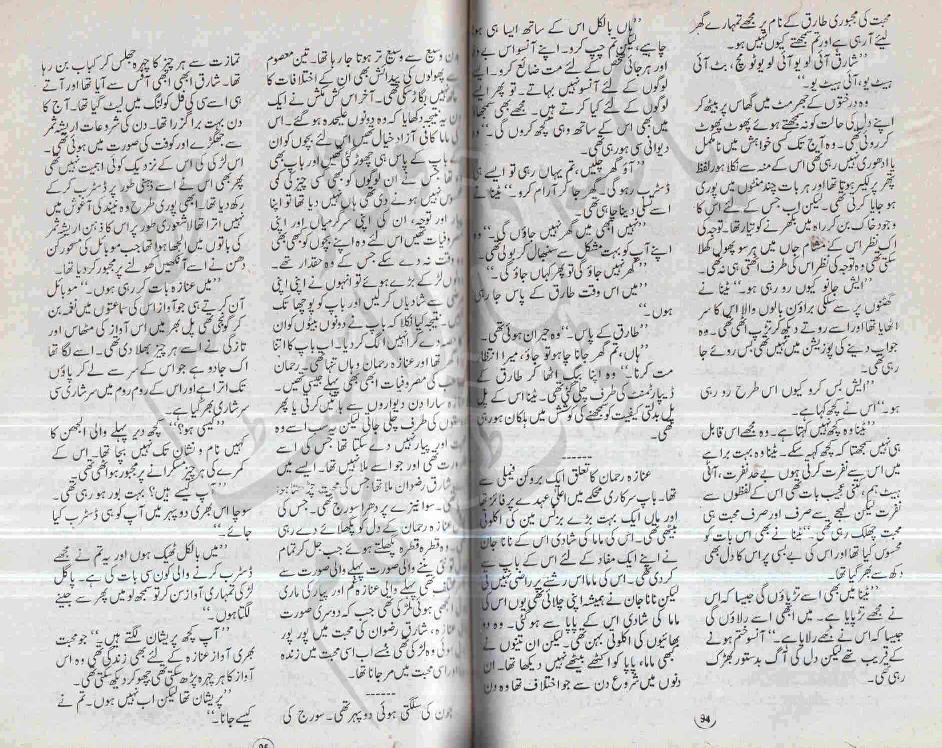 محبت کی مجبوری طارق کے نام پر مجھے تمہارے گھر
لیئے آ رہی ہے اور تم سمجھتے کیوں نہیں ہو۔
"شارق آئی لو یو آئی لو یو ٹو مچ، بٹ آئی
ہیٹ یو، آئی ہیٹ یو۔"
وہ درختوں کے جھرمٹ میں گھاس پر بیٹھ کر
اپنے دل کی حالت کو نہ سمجھتے ہوئے پھوٹ پھوٹ
کر روئی تھی۔ وہ آج تک کسی خواہش میں نامکمل
یا ادھوری نہیں رہی تھی اس کے منہ سے نکلا ہر لفظ
پتھر پر لکیر ہوتا تھا اور ہر بات چند منٹوں میں پوری
ہو جایا کرتی تھی۔ لیکن اب جس کے لئے اس کا
وجود خاک بن کر راہ میں بکھرنے کو تیار تھا۔ توجہ کی
اک نظر اس کے صحن جاں میں ہر سو پھول کھلا
سکتی تھی وہ توجہ کی نظر اس کی طرف اٹھتی ہی نہ تھی۔
"ایش جانو کیوں رو رہی ہو۔" ٹینا نے
گھٹنوں پر سے سلکی براؤن بالوں والا اس کا سر
اٹھایا تھا اور اسے روتے دیکھ کر تڑپ اٹھی تھی۔ وہ
جواب دینے کی پوزیشن میں نہیں تھی بس روئے جا
رہی تھی۔
"ایش بس کرو کیوں اس طرح رو رہی
ہو۔" اس نے کچھ کہا ہے۔
"ٹینا وہ کچھ نہیں کہتا ہے۔ وہ مجھے اس قابل
ہی نہیں سمجھتا کہ کچھ کہہ سکے۔ ٹینا وہ بہت برا ہے
میں اس سے نفرت کرتی ہوں بے حد نفرت، آئی
ہیٹ ہم، کتنی عجیب بات تھی اس کے لفظوں سے
نفرت لیکن لہجے سے صرف اور صرف محبت ہی
محبت چھلک رہی تھی۔ ٹینا نے بھی اس بات کو
محسوس کیا تھا اور اس کی بے بسی پر اس کا دل بھی
دکھ سے بھر گیا تھا۔
"ٹینا میں بھی اسے تڑپاؤں گی جیسا کہ اس
نے مجھے تڑپایا ہے۔ میں اسے بھی رلاؤں گی
جیسا کہ اس نے مجھے رلایا ہے۔" آنسو ختم ہونے
کے قریب تھے لیکن دل کی آگ بدستور بھڑک
رہی تھی۔
94
"ہاں بالکل اس کے ساتھ ایسا ہی ہو
چاہیے، لیکن تم چپ کرو۔ اپنے آنسو اس بے
اور ہرجائی شخص کے لئے مت ضائع کرو۔ ایسے
لوگوں کے لئے آنسو نہیں بہاتے۔ تو پھر ایسے
لوگوں کے لئے کیا کرتے ہیں۔ مجھے بھی سمجھا
میں بھی اس کے ساتھ وہی کچھ کروں گی۔" وہ
دیوانی سی ہو رہی تھی۔
"آؤ گھر چلیں، تم یہاں رہی تو ایسے ہی
ڈسٹرب رہو گی۔ گھر جا کر آرام کرو۔" ٹینا نے
اسے تسلی دینا چاہی تھی۔
"نہیں میں ابھی گھر نہیں جاؤں گی۔" وہ
اپنے آپ کو بہت مشکل سے سنبھال کر بولی تھی۔
"گھر نہیں جاؤ گی تو پھر کہاں جاؤ گی۔"
"میں اس وقت طارق کے پاس جا رہی
ہوں۔"
"طارق کے پاس۔" وہ حیران ہوئی تھی۔
"ہاں، تم گھر جانا چاہو تو جاؤ، میرا انتظا
مت کرنا۔" وہ اپنا بیگ اٹھا کر طارق کے
ڈیپارٹمنٹ کی طرف چلی گئی تھی۔ ٹینا اس کے پل
پل بدلتی کیفیت کو سمجھنے کی کوشش میں ہلکان ہو رہی
تھی۔
------
عنازہ رحمان کا تعلق ایک بروکن فیملی سے
تھا۔ باپ سرکاری محکمے میں اعلیٰ عہدے پر فائز تھا
اور ماں ایک بہت بڑے بزنس مین کی اکلوتی
بیٹی تھی۔ اس کی ماما کی شادی اس کے نانا جان
نے اپنے ایک مفاد کے لئے اس کے پاپا سے
کر دی تھی۔ اس کی ماما اس رشتے پر راضی نہیں تھی
لیکن نانا جان نے ہمیشہ اپنی چلائی تھی یوں اس کی
ماما کی شادی اس کے پاپا سے ہو گئی۔ وہ دو
بھائیوں کی اکلوتی بہن تھی۔ لیکن ان تینوں نے
کبھی ماما، پاپا کو اکٹھے بیٹھے نہیں دیکھا تھا۔ ان
دنوں میں شروع دن سے جو اختلاف تھا وہ دن
وسیع سے وسیع تر ہوتا جا رہا تھا۔ تین معصوم
پھولوں کی پیدائش بھی ان کے اختلافات کا
نہیں بگاڑ سکی تھی۔ آخر اس کش مکش نے ایک
یہ نتیجہ دکھایا کہ وہ دونوں علیحدہ ہو گئے۔ اس
ماما کافی آزاد خیال تھیں اس لئے بچوں کو ان
باپ کے پاس ہی چھوڑ گئی تھیں اور باپ بھی
تھا جس نے ان لوگوں کو بھی کسی چیز کی کمی
نہیں ہونے دی تھی ہاں نہیں دیا تھا تو اپنا
اور توجہ، ان کی اپنی سرگرمیاں اور اپنی
مصروفیات تھیں اس لئے وہ اپنے بچوں کو بھی بھی
وقت نہ دے سکے جس کے وہ حقدار تھے۔
لڑکے بڑے ہوئے تو انہوں نے اپنی اپنی
سے شادیاں کر لیں اور باپ کو پوچھا تک
نتیجہ کیا نکلا کہ باپ نے دونوں بیٹوں کو ان
دے کر انہیں الگ کر دیا۔ اب باپ کا اتنا
تھا اور عنازہ رحمان وہاں تنہا تھی۔ رحمان
کی مصروفیات ابھی بھی پہلے جیسی تھیں۔
سارا دن دیواروں سے باتیں کرتی یا پھر
کی طرف چلی جاتی لیکن سب اسے وہ
اور پیار نہیں دے سکتا تھا جس کی اسے
تھی اور جو اسے ملا نہیں تھا۔ ایسے میں
شارق رضوان ملا تھا جس کی محبت چڑھتا ہوا
سوا نیزے پر دھرا سورج تھی۔ جس کی
عنازہ رحمان کے دل کو پگھلائے دے رہی
وہ قطرہ قطرہ پگھلتے ہوئے جب جل کر تمام
نئی بننے والی صورت پہلے والی صورت سے
تھی پہلے والی عنازہ گم اور پیار کی ماری
ہوئی لڑکی تھی جب کہ دوسری صورت
عنازہ، شارق رضوان کی محبت میں پور پور
ہوئی وہ لڑکی تھی جسے اب اسی محبت میں زندہ
اور اسی محبت میں مر جانا تھا۔
------
جون کی سلگتی ہوئی دوپہر تھی۔ سورج کی
تمازت سے ہر چیز کا چہرہ جھلس کر کباب بن رہا
تھا۔ شارق ابھی ابھی آفس سے آیا تھا اور آتے
ہی اے سی کی فل کولنگ میں لیٹ گیا تھا۔ آج کا
دن بہت برا گزرا تھا۔ دن کی شروعات اریشہ ثمر
سے جھگڑے اور کوفت کی صورت میں ہوئی تھی۔
اس لڑکی کی اس کے نزدیک کوئی اہمیت نہیں تھی
پھر بھی اس نے اسے ذہنی طور پر ڈسٹرب کر کے
رکھ دیا تھا۔ ابھی پوری طرح وہ نیند کی آغوش میں
نہیں اترا تھا لاشعوری طور پر اس کا ذہن اریشہ ثمر
کی باتوں میں الجھا ہوا تھا جب موبائل کی مسحور کن
دھن نے اسے آنکھیں کھولنے پر مجبور کر دیا تھا۔
"میں عنازہ بات کر رہی ہوں۔" موبائل
آن کرتے ہی جو آواز اس کی سماعتوں میں نغمہ بن
کر گونجی تھی پل بھر میں اس آواز کی مٹھاس اور
تازگی نے اسے ہر چیز بھلا دی تھی۔ اسے لگا تھا
اک جادو ہے جو اس کے سر سے لے کر پاؤں
تک اترا ہے اور اس کے روم روم میں سرشاری سی
سرشاری بھر گیا ہے۔
"کیسی ہو؟" کچھ دیر پہلے والی الجھن کا
کہیں نام و نشان تک نہیں بچا تھا۔ اس کے
کمرے کی ہر چیز مسکرانے پر مجبور ہو اٹھی تھی۔
"آپ کیسے ہیں؟ بہت بور ہو رہی تھی۔
سوچا اس بھری دوپہر میں آپ کو ہی ڈسٹرب کیا
جائے۔"
"میں بالکل ٹھیک ہوں اور یہ تم نے مجھے
ڈسٹرب کرنے والی کون سی بات کی ہے۔ پاگل
لڑکی تمہاری آواز سن کر تو سمجھ لو میں پھر سے جینے
لگتا ہوں۔"
"آپ کچھ پریشان لگتے ہیں۔" جو محبت
بھری آواز عنازہ کے لئے بھی زندگی تھی وہ اس
آواز کا ہر چہرہ پڑھ سکتی تھی چھو کر دیکھ سکتی تھی۔
"پریشان تھا لیکن اب نہیں ہوں۔ تم نے
کیسے جانا۔"